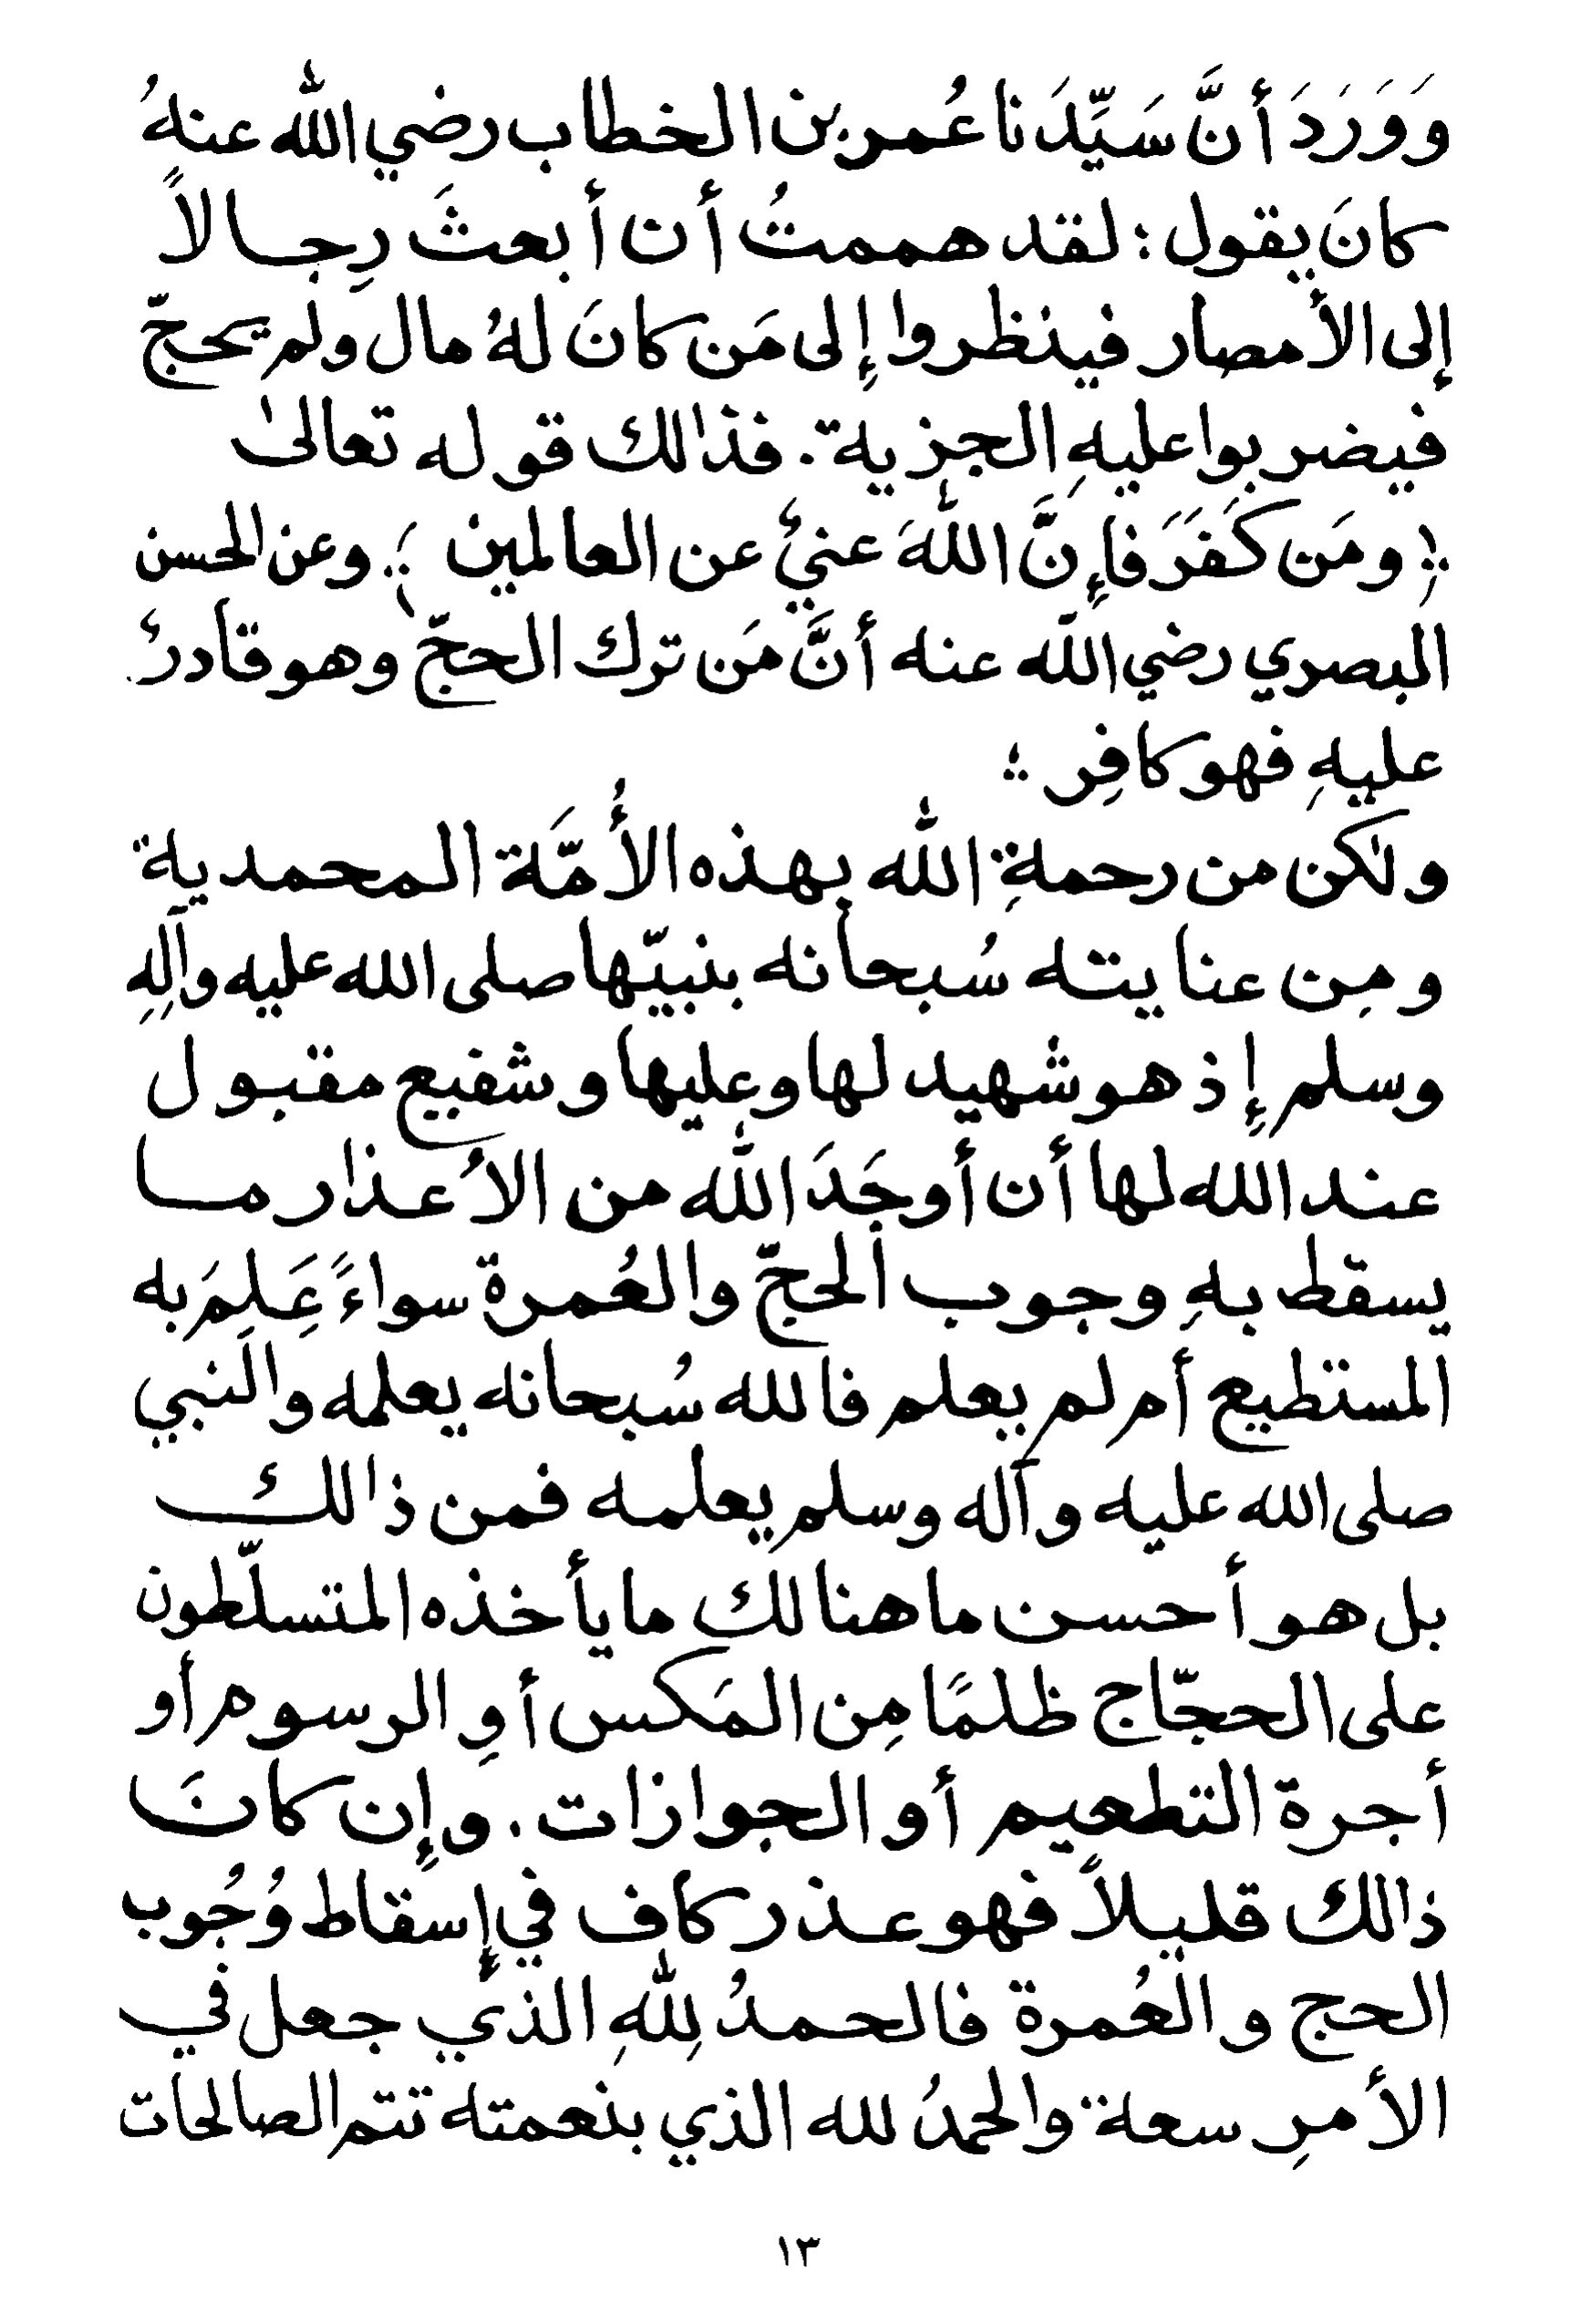 وَوَرَدَ أنَّ سَيِّدَنا عُمر بن الخطاب رضي الله عنهُ
كانَ يقول : لقد هممتُ أن أبعثَ رِجالاً
إلى الأمصار فينظروا إِلى مَن كانَ لهُ مال ولم يحجّ
فيضربوا عليهِ الجزية . فذالك قوله تعالىٰ
﴿ ومَن كَفَرَ فإِنَّ اللهَ عنيٌ عن العالمين ﴾ . وعن الحسن
البصري رضي الله عنه أنَّ مَن ترك الحجّ وهو قادرٌ
عليهِ فهو كافِر ؛
ولٰكن من رحمةِ الله بهذه الأُمَّة المحمدية
ومِن عنايته سُبحانه بنبيّها صلى الله عليه وآلِهِ
وسلم إِذ هو شهيد لها وعليها وشفيع مقبول
عند الله لها أن أوجَدَ الله من الأعذار ما
يسقط بهِ وجوب الحجّ والعُمرة سواءً عَلِمَ به
المستطيع أم لم يعلم فالله سُبحانه يعلمه والنبي
صلى الله عليه وآله وسلم يعلمه فمن ذالك
بل هو أحسن ما هنالك ما يأخذه المتسلّطون
على الحجّاج ظلمًا مِن المَكس أوِ الرسوم أو
أجرة التطعيم أو الجوازات . وإِن كانَ
ذالك قليلاً فهو عذر كاف في إِسقاط وُجُوب
الحج والعُمرة فالحمدُ لِلهِ الذي جعل في
الأمرِ سعة والحمدُ لله الذي بنعمته تتم الصالحات
١٣